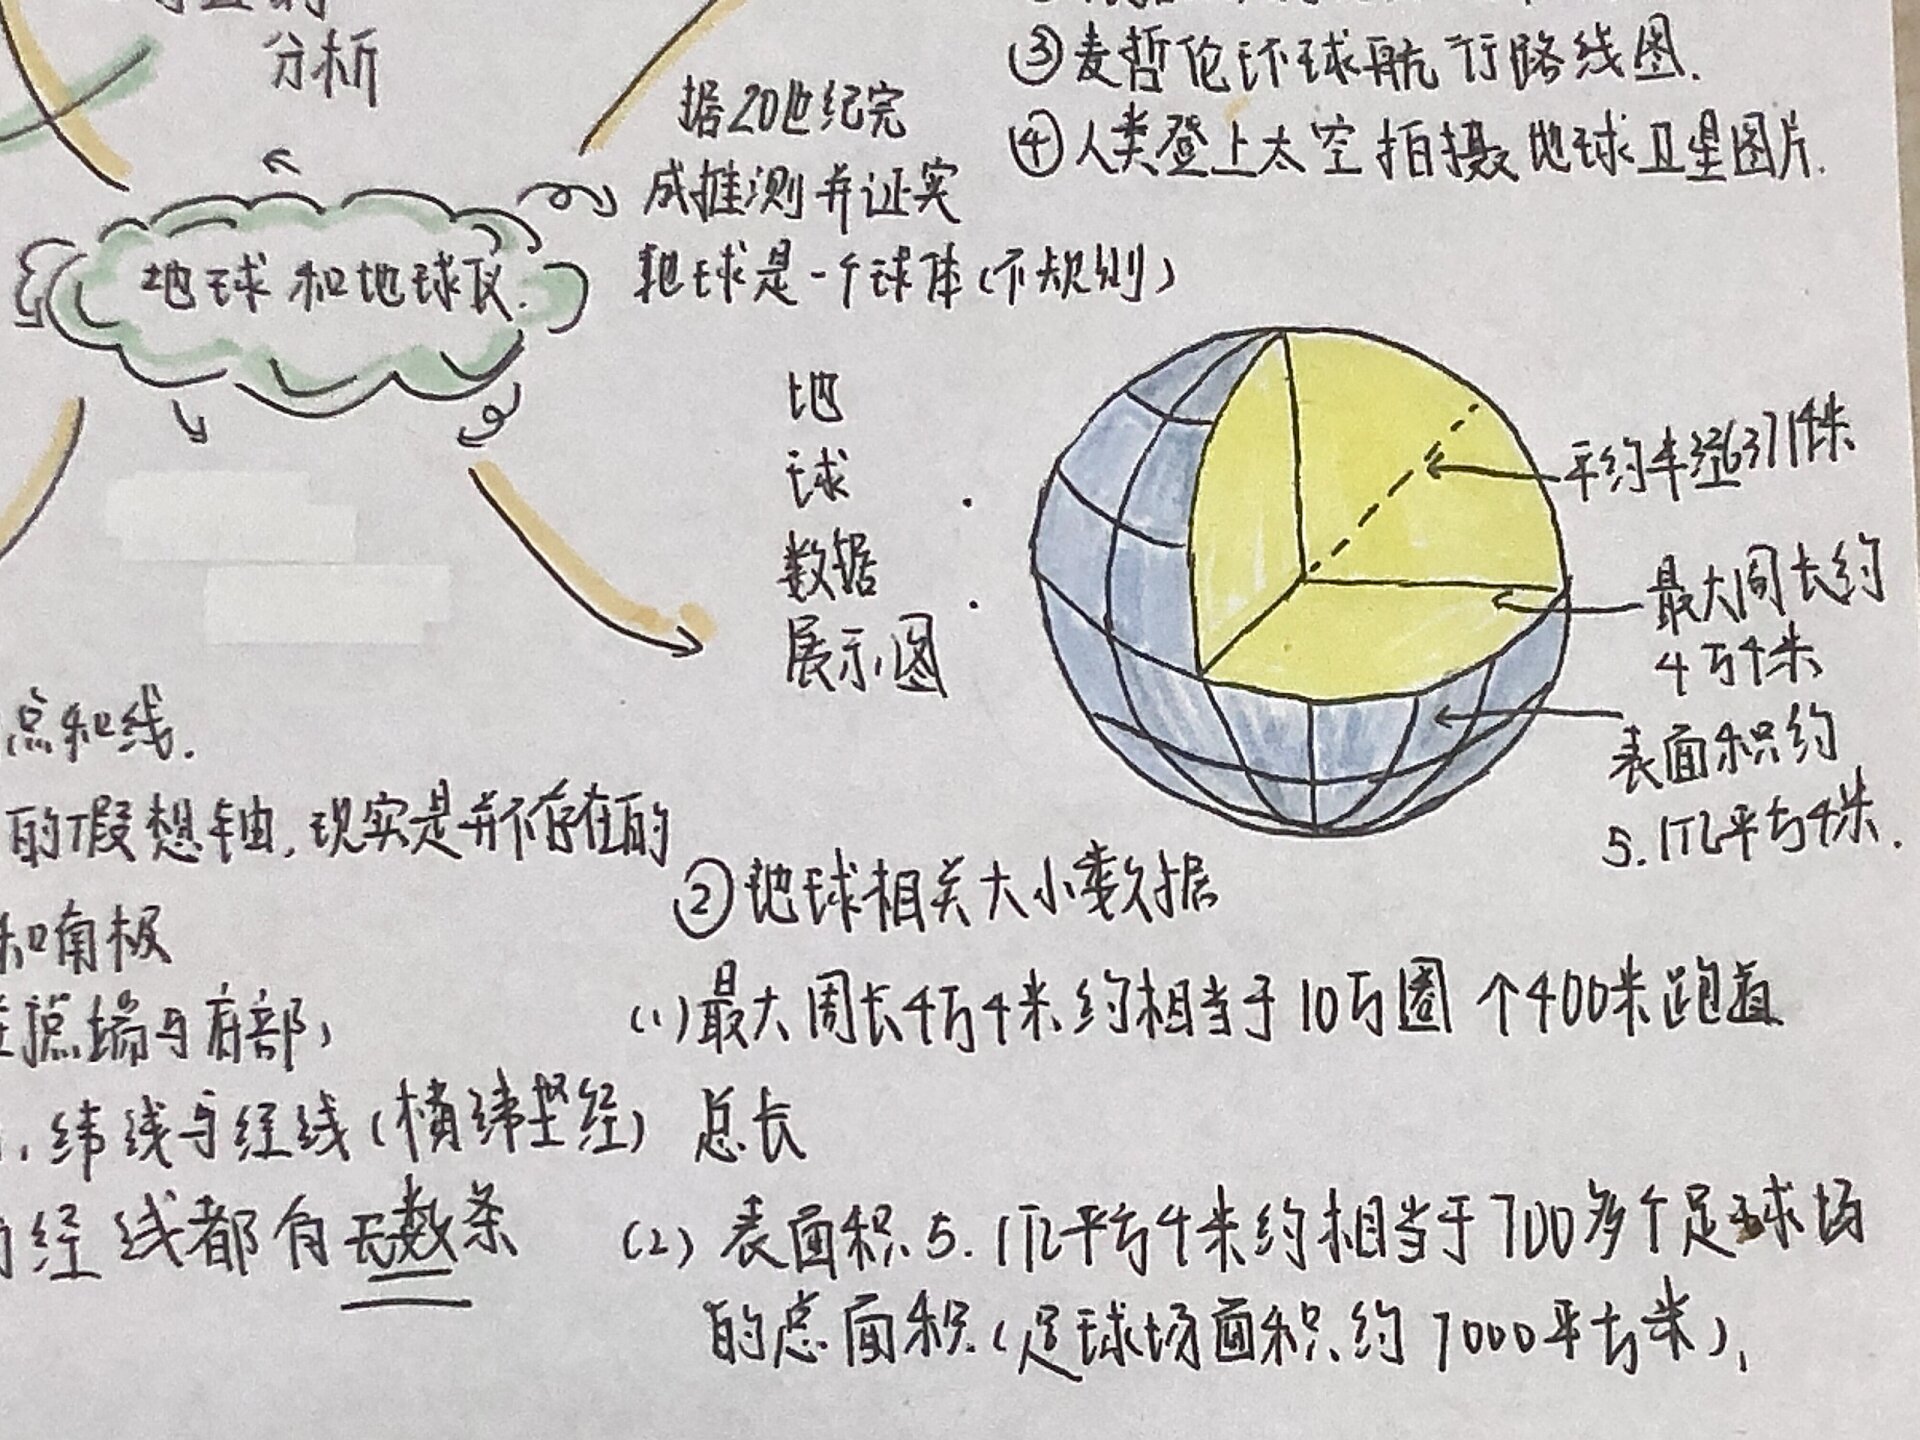 分析
③麦哲伦环球航行路线图.
④人类登上太空拍摄地球卫星图片.
据20世纪完
成推测并证实
地球是一个球体(不规则)
地球和地球仪.
地
球
数据
展示图
平约半径6371千米
最大周长约
4万千米
表面积约
5.1亿平方千米.
点和线.
的假想轴,现实是并不存在的
和南极
端与底部,
纬线与经线(横纬竖经)
经线都有无数条
②地球相关大小数据
(1)最大周长4万千米约相当于10万圈个400米跑道
总长
(2)表面积5.1亿平方千米约相当于700多个足球场
的总面积(足球场面积约7000平方米),